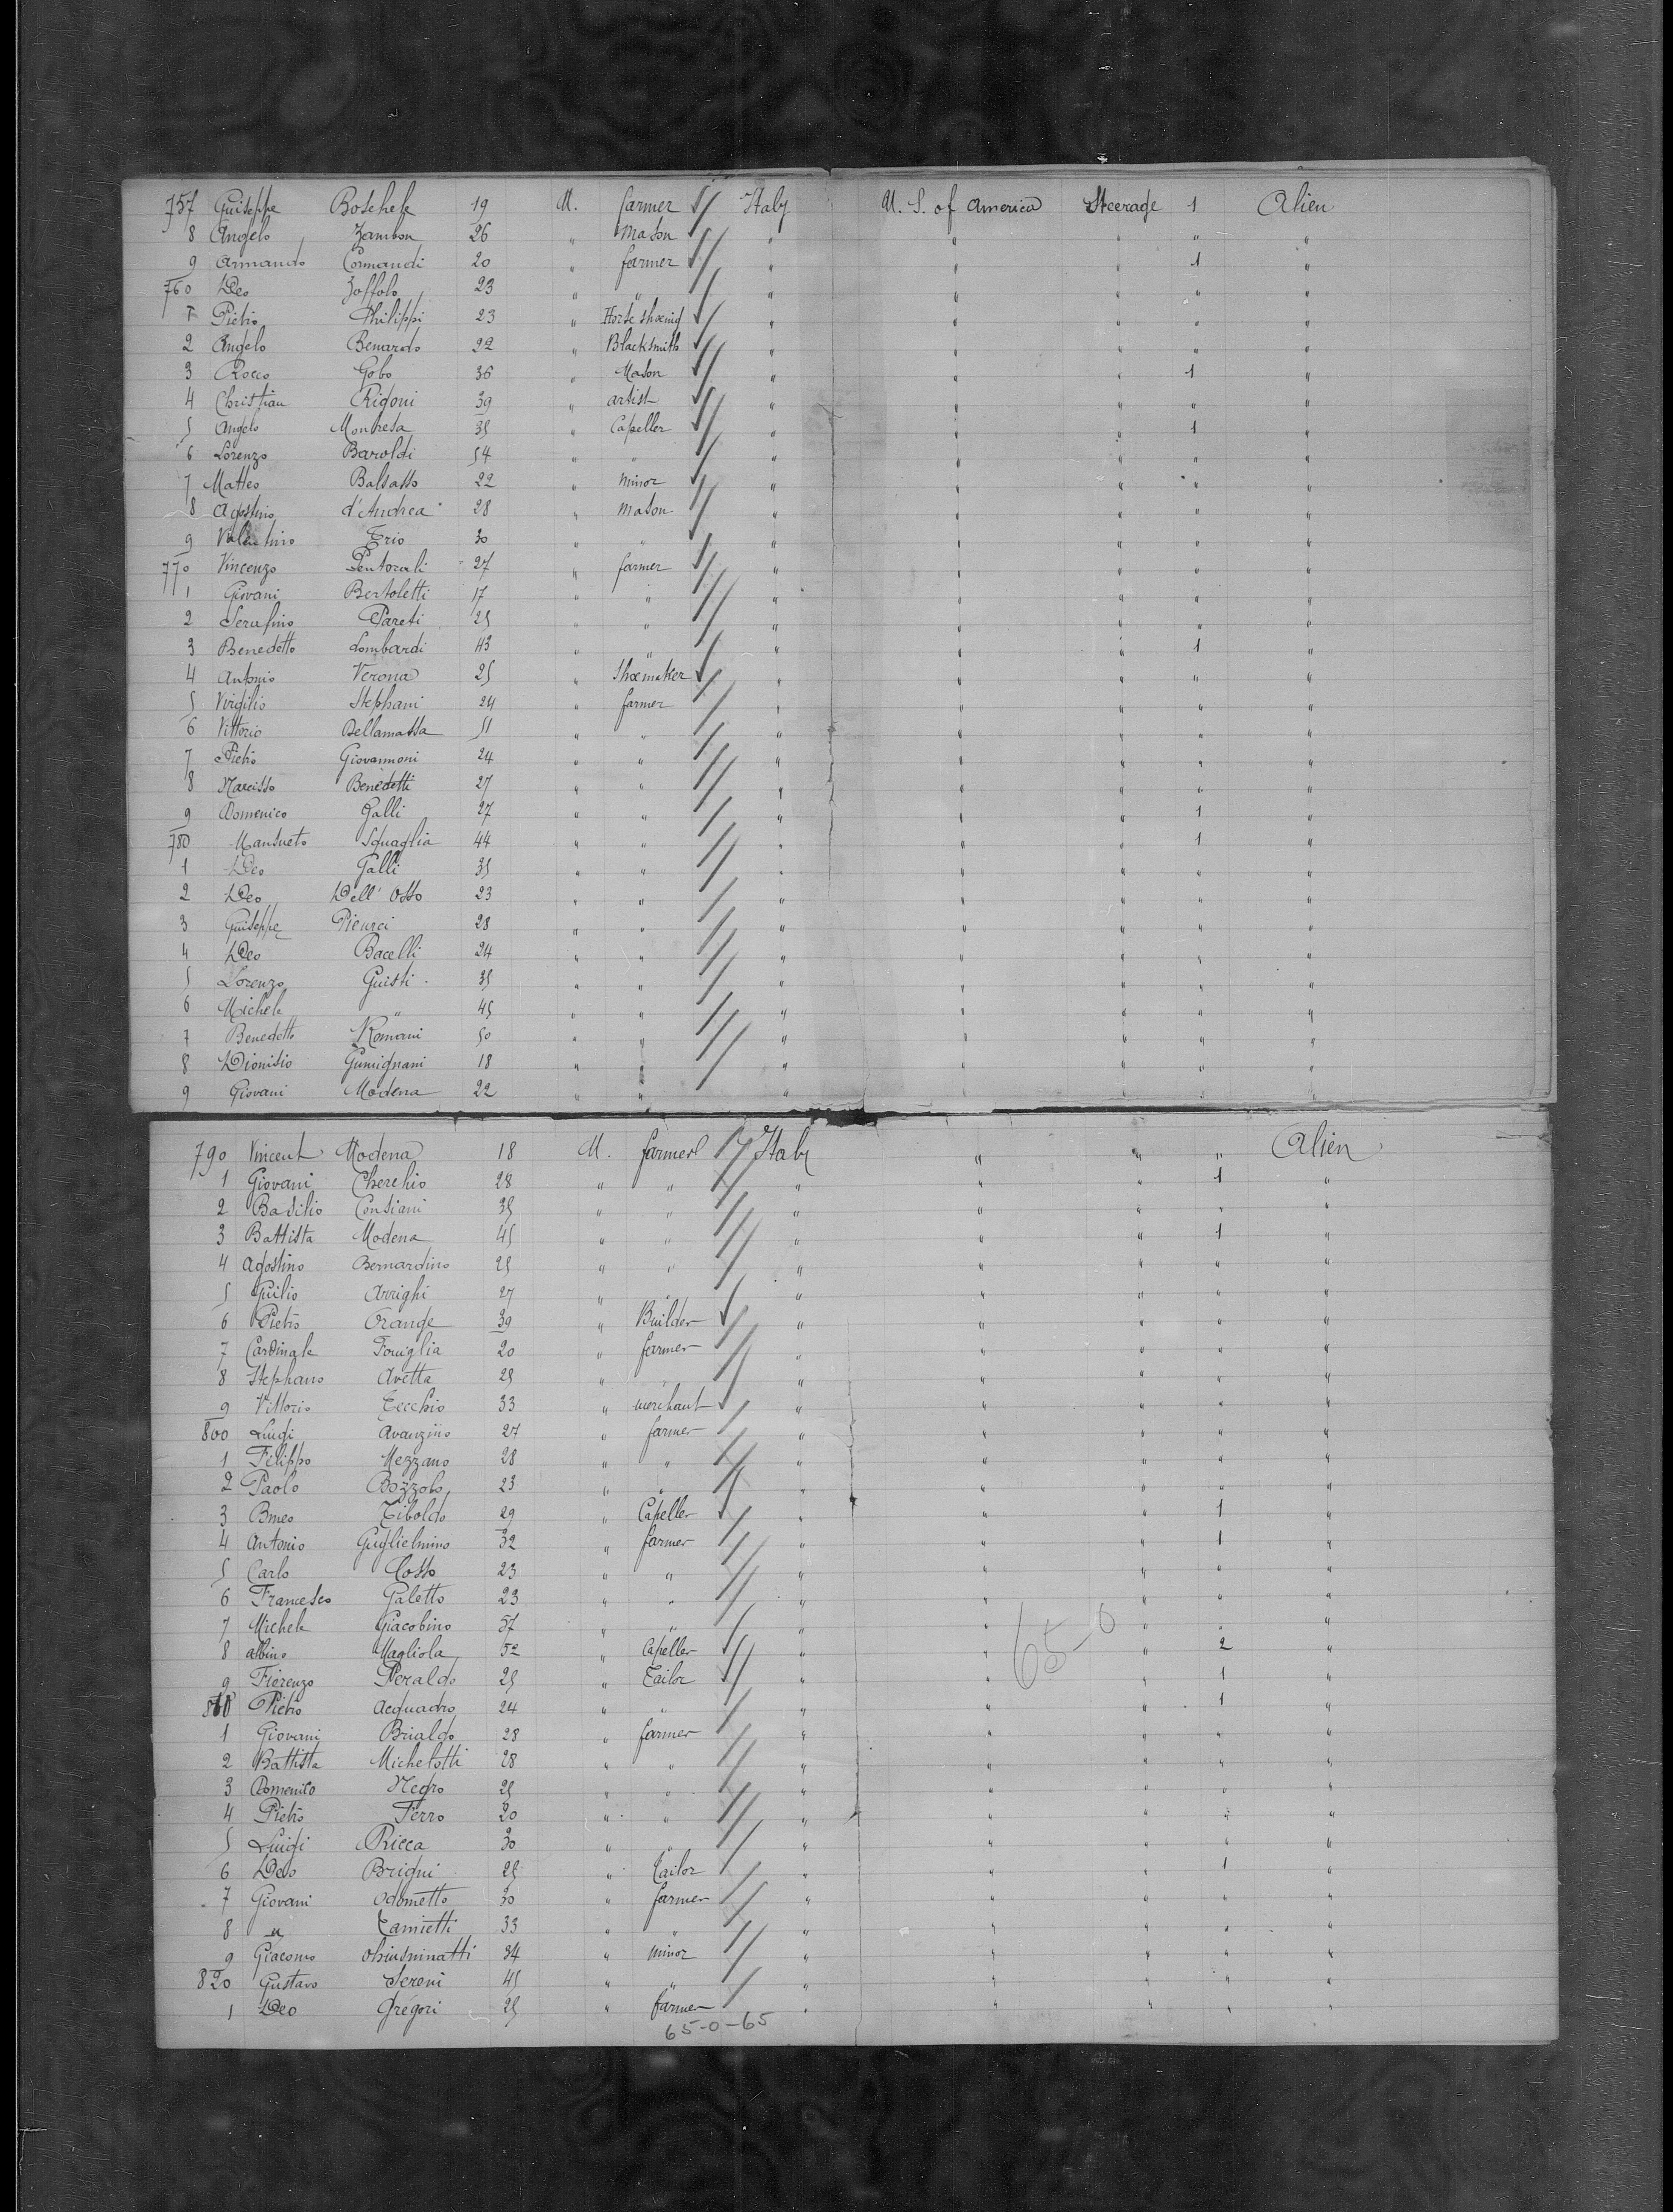 757 Guiseppe Boschele 19 M. farmer Italy U. S. of America Steerage 1 Alien
8 Angelo Zambon 26 " Mason " " " " "
9 Armando Cormandi 20 " farmer " " " 1 "
760 Deo Zoffolo 23 " " " " " " "
1 Pietro Philippi 23 " Horse shoeing " " " " "
2 Angelo Benardo 22 " Blacksmith " " " " "
3 Rocco Gobo 36 " Mason " " " 1 "
4 Christian Rigoni 39 " artist " " " " "
5 Angelo Montresa 35 " Capeller " " " 1 "
6 Lorenzo Baroldi 54 " " " " " " "
7 Matteo Balsasso 22 " minor " " " " "
8 Agostino d'Andrea 28 " mason " " " " "
9 Valentino Trio 30 " " " " " " "
770 Vincenzo Pentorali 27 " farmer " " " " "
1 Giovani Bertoletti 17 " " " " " " "
2 Serafino Pareti 25 " " " " " " "
3 Benedetto Lombardi 43 " " " " " 1 "
4 Antonio Verona 25 " Shoemaker " " " " "
5 Virgilio Stephani 24 " farmer " " " " "
6 Vittorio Bellamassa 51 " " " " " " "
7 Pietro Giovannoni 24 " " " " " " "
8 Narcisso Benedetti 27 " " " " " " "
9 Domenico Galli 27 " " " " " 1 "
780 Mansueto Squaglia 44 " " " " " 1 "
1 Deo Galli 35 " " " " " " "
2 Deo Dell' Osso 23 " " " " " " "
3 Guiseppe Pieucci 28 " " " " " " "
4 Deo Bacelli 24 " " " " " " "
5 Lorenzo Guisti 35 " " " " " " "
6 Michele " 45 " " " " " " "
7 Benedetto Romani 50 " " " " " " "
8 Dionisio Gumignani 18 " " " " " " "
9 Giovani Modena 22 " " " " " " "
790 Vincent Modena 18 M. farmer Italy " " " Alien
1 Giovani Cherchio 28 " " " " " 1 "
2 Basilio Consiani 35 " " " " " " "
3 Battista Modena 45 " " " " " 1 "
4 Agostino Bernardino 25 " " " " " " "
5 Guilio Arrighi 27 " " " " " " "
6 Pietro Orange 39 " Builder " " " " "
7 Cardinale Fouiglia 20 " farmer " " " " "
8 Stephano Avetta 25 " " " " " " "
9 Vittorio Tecchio 33 " merchant " " " " "
800 Luigi Avanzino 27 " farmer " " " " "
1 Filippo Mezzano 28 " " " " " " "
2 Paolo Bozzolo 23 " " " " " " "
3 Bmeo Tiboldo 29 " Capeller " " " 1 "
4 Antonio Guglielmino 32 " farmer " " " 1 "
5 Carlo Cosso 23 " " " " " " "
6 Francesco Galetto 23 " " " " " " "
7 Michele Giacobino 57 " " " " " " "
65-0
8 Albino Magliola 52 " Capeller " " " 2 "
9 Fiorenzo Peraldo 25 " Tailor " " " 1 "
810 Pietro Acquadro 24 " " " " " 1 "
1 Giovani Brialdo 28 " farmer " " " " "
2 Battista Michelotti 28 " " " " " " "
3 Domenico Negro 25 " " " " " " "
4 Pietro Ferro 20 " " " " " " "
5 Luigi Ricca 30 " " " " " " "
6 Deo Brigni 25 " Tailor " " " 1 "
7 Giovani Odometto 30 " farmer " " " " "
8 " Tamietti 33 " " " " " " "
9 Giacomo 34 " minor " " " " "
820 Gustavo Sereni 45 " " " " " " "
1 Deo Grégori 25 " farmer " " " " "
65-0-65